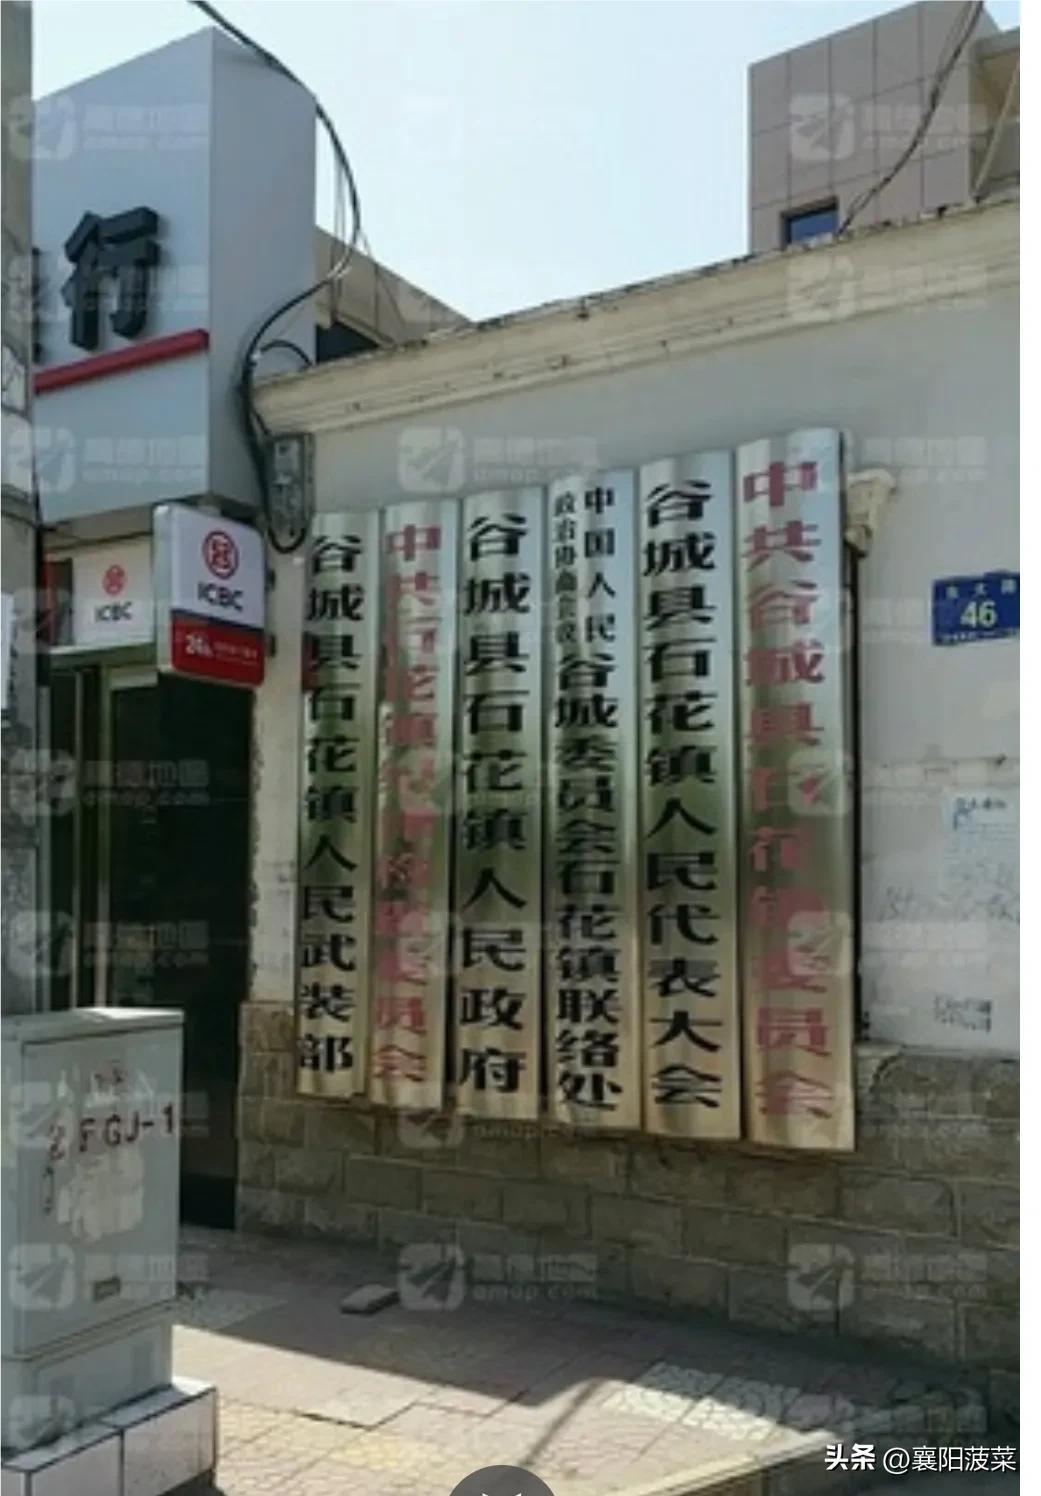 行
ICBC
ICBC
24h
中共谷城县石花镇委员会
谷城县石花镇人民代表大会
中国人民
政治协商会议
谷城委员会石花镇联络处
谷城县石花镇人民政府
中共石花镇纪律检查委员会
谷城县石花镇人民武装部
46
FGJ-1
高德地图
amap.com
头条 @襄阳菠菜